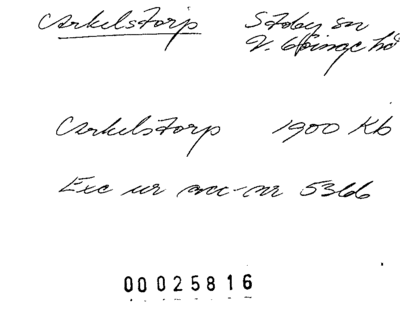 Arkelstorp Stoby sn
V. Göinge hd
Arkelstorp 1900 Kb
Exc ur acc-nr 5366
00025816